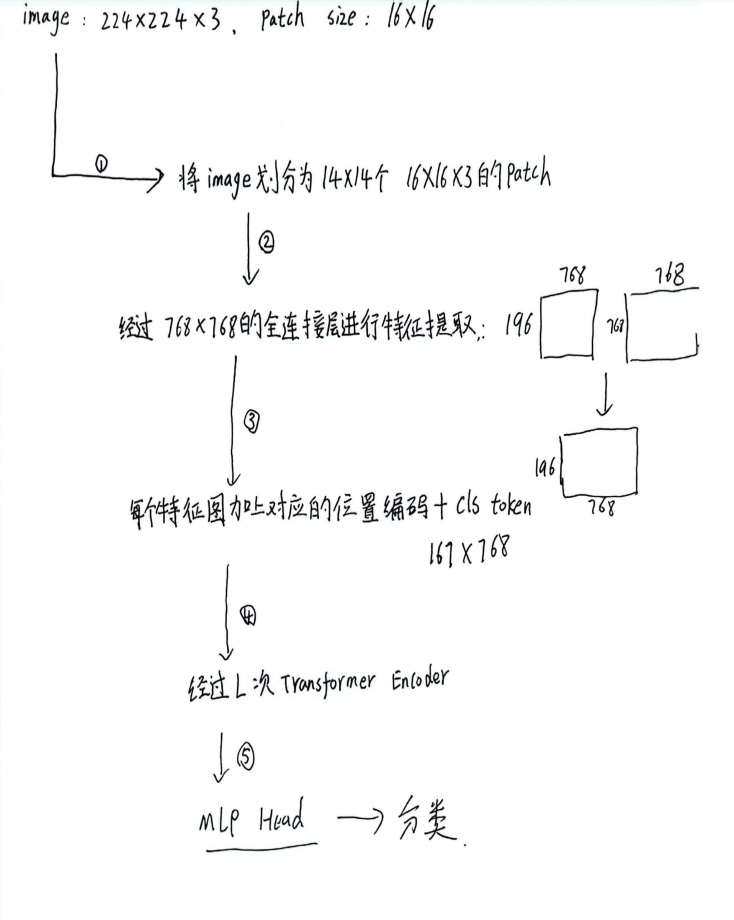 image : 224×224×3 , patch size : 16×16
①
将image划分为14×14个 16×16×3的patch
②
768 768
经过 768×768的全连接层进行特征提取: 196 768
③
196
768
每个特征图加上对应的位置编码+ cls token
167×768
④
经过L次 Transformer Encoder
⑤
MLP Head → 分类.